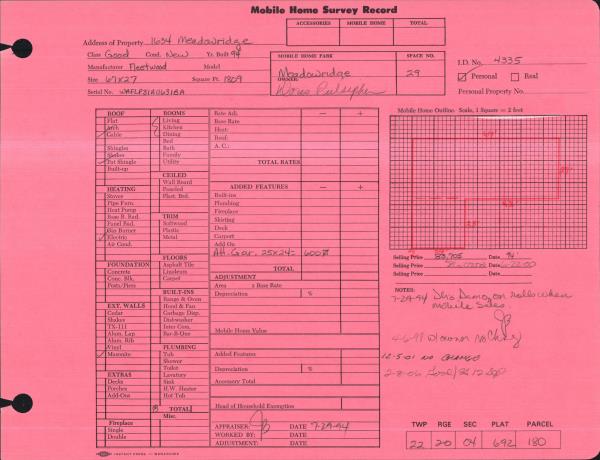 Mobile Home Survey Record
ACCESSORIES MOBILE HOME TOTAL
Address of Property 1634 Meadowridge
Class Good Cond. New Yr. Built 94
Manufacturer Fleetwood Model
Size 67X27 Square Ft. 1809
Serial No.
MOBILE HOME PARK SPACE NO.
Meadowridge 29
OWNER:
I.D. No. 4335
Personal Real
ROOF
Flat
Arch
Gable
Shingles
Shakes
Pat Shingle
Built-up
HEATING
Stoves
Pipe Furn.
Heat Pump
Base B. Rad.
Panel Rad.
Gas Burner
Electric
Air Cond.
FOUNDATION
Concrete
Conc. Blk.
Posts/Piers
EXT. WALLS
Cedar
Shakes
TX-111
Alum. Lap
Alum. Rib
Vinyl
Masonite
EXTRAS
Decks
Porches
Add-Ons
Fireplace
Single
Double
ROOMS
Living
Kitchen
Dining
Bed
Bath
Family
Utility
CEILED
Wall Board
Paneled
Plast. Brd.
TRIM
Softwood
Plastic
Metal
FLOORS
Asphalt Tile
Linoleum
Carpet
BUILT-INS
Range & Oven
Hood & Fan
Garbage Disp.
Dishwasher
Inter Com.
Bar-B-Que
PLUMBING
Tub
Shower
Toilet
Lavatory
Sink
H.W. Heater
Hot Tub
TOTAL
Misc.
Rate Adj. — +
Base Rate
Heat:
Roof:
A. C.:
TOTAL RATES
ADDED FEATURES — +
Built-ins
Plumbing
Fireplace
Skirting
Deck
Carport
Add On
Att. Gar. 25x24= 600
TOTAL
ADJUSTMENT
Area x Base Rate
Depreciation %
Mobile Home Value
Added Features
Depreciation %
Accessory Total
Head of Household Exemption
APPRAISER: DATE 7-29-94
WORKED BY: DATE
ADJUSTMENT: DATE
Mobile Home Outline. Scale, 1 Square = 2 feet
67'
Selling Price 83,705 Date 94
Selling Price Date
Selling Price Date
NOTES:
7-29-94
mobile sales.
12-5-01 NO CHANGE
2-8-06
TWP RGE SEC PLAT PARCEL
22 20 04 692 180